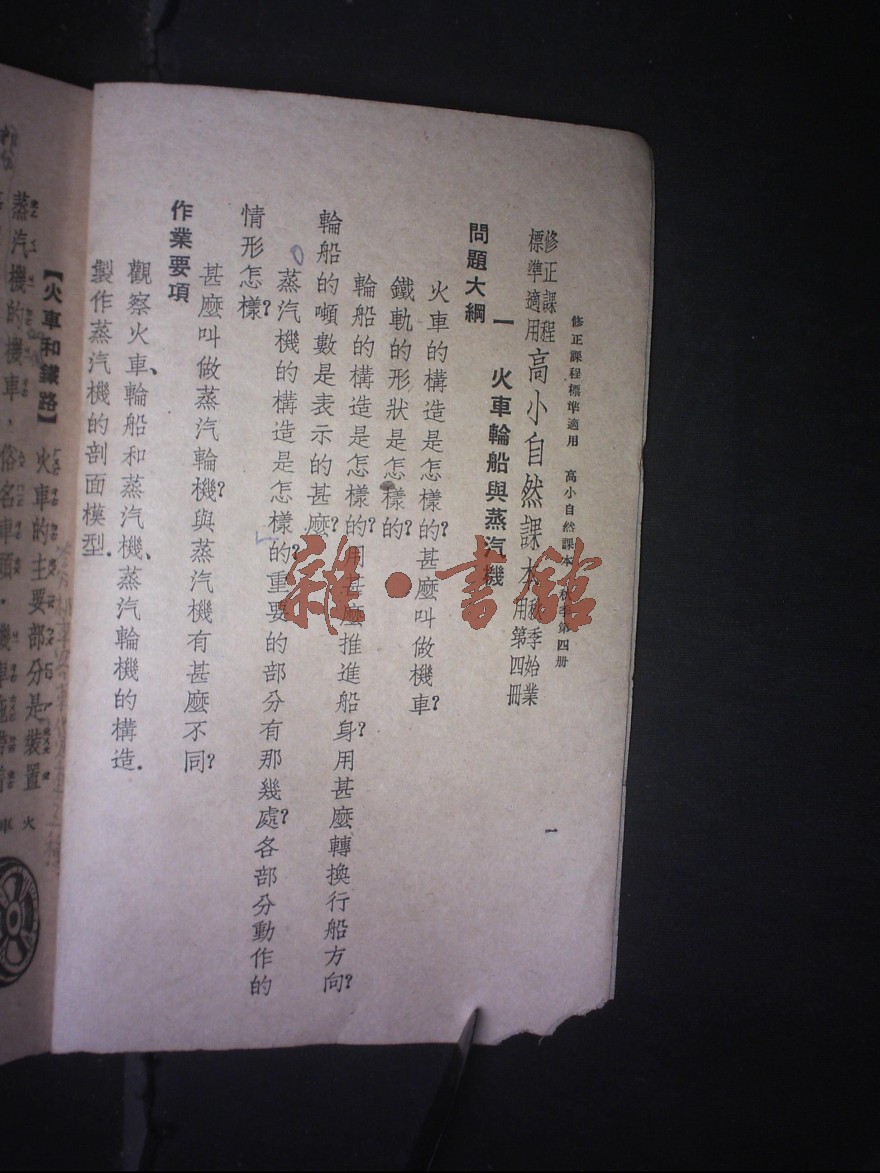 修正課程標準適用 高小自然課本 秋季第四册
修正課程標準適用高小自然課本秋季始業用第四冊
一 火車輪船與蒸汽機
問題大綱
火車的構造是怎樣的?甚麼叫做機車?
鐵軌的形狀是怎樣的?
輪船的構造是怎樣的?用甚麼推進船身?用甚麼轉換行船方向?
輪船的噸數是表示的甚麼?
蒸汽機的構造是怎樣的?重要的部分有那幾處?各部分動作的
情形怎樣?
甚麼叫做蒸汽輪機?與蒸汽機有甚麼不同?
作業要項
觀察火車、輪船和蒸汽機、蒸汽輪機的構造.
製作蒸汽機的剖面模型.
一
【火車和鐵路】 火車的主要部分是裝置
蒸汽機的機車,俗名車頭.機車拖帶着
火車
雜·書館